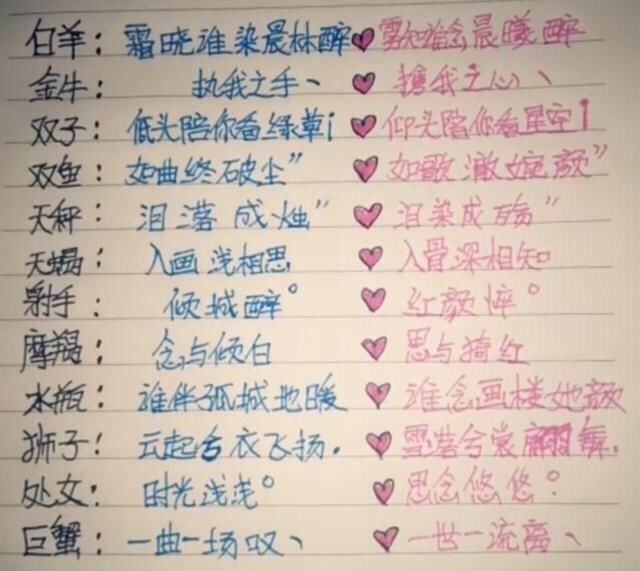 白羊：霜晓谁染晨林醉♥雾知谁念晨曦醉
金牛：执我之手丶♥携我之心丶
双子：低头陪你看绿草i♥仰头陪你看星空i
双鱼：如曲终破尘”♥如歌澈婉颜”
天秤：泪落成烛”♥泪染成殇”
天蝎：入画浅相思♥入骨深相知
射手：倾城醉°♥红颜悴°
摩羯：念与倾白♥思与绮红
水瓶：谁伴孤城地暖♥谁念画楼她颜
狮子！云起兮衣飞扬.♥雪落兮裳翩舞.
处女：时光浅浅°♥思念悠悠°
巨蟹：一曲一场叹丶♥一世一流离丶